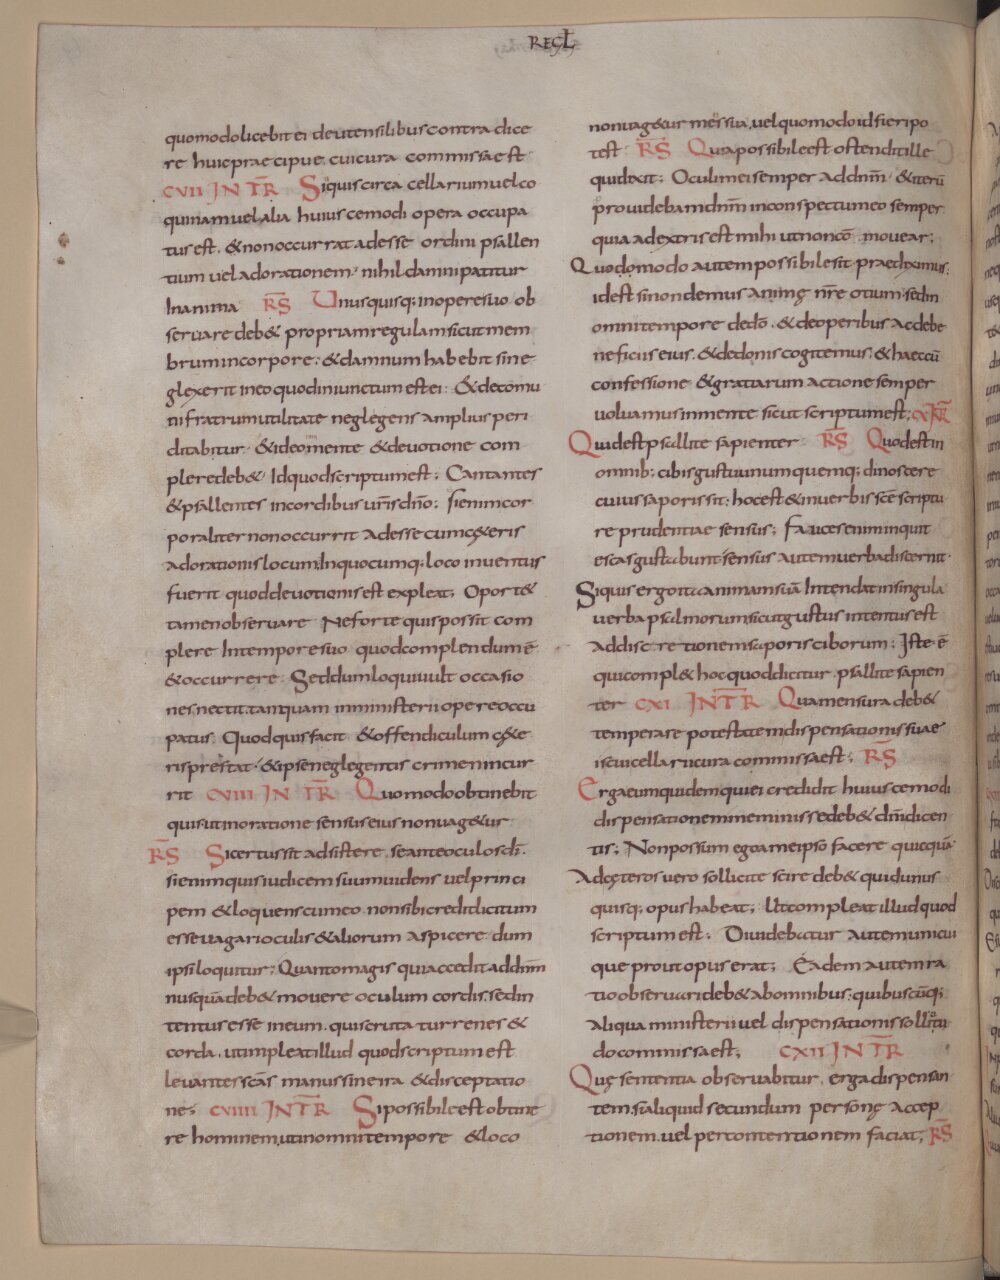 REGL
quomodo licebit ei de utensilibus contradice
re huic praecipue. cui cura commissa est
CVII INTR Siquis circa cellarium vel co
quinam vel alia huiuscemodi opera occupa
tus est. & non occurrat adesse ordini psallen
tium vel adorationem. nihil damni patitur
In anima RS Unusquisq; in opere suo ob
servare deb& propriam regulam sicut mem
brum in corpore. & damnum habebit si ne
glexerit in eo quod iniunctum est ei. & de comu
ni fratrum utilitate neglegens amplius peri
clitabitur. & ideo mente & devotione com
plere deb& Id quod scriptum est; Cantantes
& psallentes in cordibus vris dno; si enim cor
poraliter non occurrit adesse cum c&eris
adorationis locum In quocumq; loco inventus
fuerit quod devotionis est expleat; Oport&
tamen observare Ne forte quis possit com
plere In tempore suo quod complendum ē
& occurrere. Sed dum loqui vult occasio
nes nectit. tamquam in ministerii opere occu
patus. Quod qui facit & offendiculum c&e
ris prestat. & ipse neglegentis crimen incur
rit CVIII INTR Quomodo obtinebit
quis ut in oratione sensus eius non vag&ur
RS Si certus sit adsistere. se ante oculos di.
si enim quis iudicem suum videns vel princi
pem & loquens cum eo non sibi credit licitum
esse vagari oculis & aliorum aspicere dum
ipsi loquitur; Quanto magis qui accedit ad dnm
nusquā deb& movere oculum cordis. sed in
tentus esse in eum. qui scrutatur renes &
corda. ut impleat illud quod scriptum est
levantes scās manus sine ira & disceptatio
ne; CVIIII INTR Si possibile est obtine
re hominem, ut in omni tempore & loco
non vag&ur mens sua, vel quomodo id fieri po
test RS Quia possibile est ostendit ille
qui dixit; Oculi mei semper ad dnm & iterū
providebam dnm in conspectu meo semper
quia a dextris est mihi ut non cō movear;
Quodomodo autem possibile sit praediximus;
id est si non demus animę nrē otium. sed in
omni tempore de dō. & de operibus ac de be
neficiis eius. & de donis cogitemus. & haec cū
confessione & gratiarum actione semper
volvamus in mente sicut scriptum est; CX INTR
Quid est psallite sapienter RS Quod est in
omnib; cibis gustuum unumquemq; dinoscere
cuius saporis sit; hoc est & in verbis scē scriptu
re prudentiae sensus; Fauces enim inquit
escas gustabunt. sensus autem verba discernit.
Siquis ergo ita animam suā Intendat in singula
verba psalmorum sicut gustus intentus est
ad discretionem saporis ciborum; Iste ē
qui compl& hoc quod dicitur. psallite sapien
ter CXI INTR Qua mensura deb&
temperare potestatem dispensationis suae
is cui cellarii cura commissa est; RS
Erga eum quidem qui ei credidit huiuscemodi
dispensationem meminisse deb& dni dicen
tis; Non possum ego a me ipso facere quicquā
Ad cęteros vero sollicite scire deb& quid unus
quisq; opus habeat; Ut compleat illud quod
scriptum est; Dividebatur autem unicui
que prout opus erat; Eadem autem ra
tio observari deb& ab omnibus. quibuscūq;
aliqua ministerii vel dispensationis sollitu
do commissa est; CXII INTR
Quę sententia observabitur. erga dispensan
tem si aliquid secundum personę accep
tionem. vel per contentionem faciat; RS